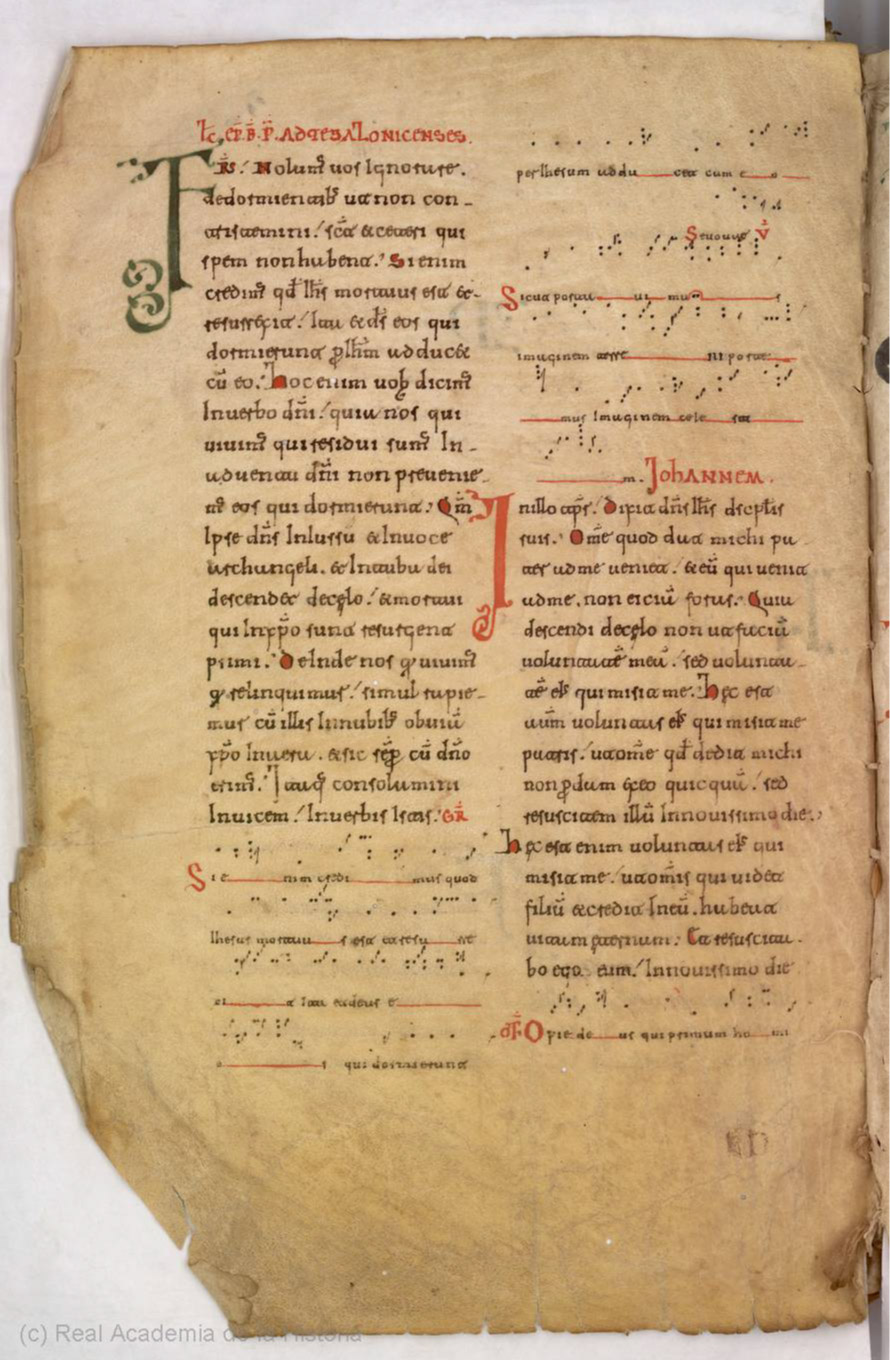 Lc̄. EP̄. B̄. P̄. ADTESALONICENSES.
FRS̄. Nolum᷒ uos Ignorare.
dedormientib; ut non con-
tristemini. sc̄t &ceteri qui
spem non habent. Si enim
credim᷒ qd̄ Ih̄s mortuus est &-
resurrexit. Ita & ds̄ eos qui
dormierunt ꝑ Ih̄m adduc&
cū eo. Hoc enim uob̄ dicim᷒
Inuerbo dn̄i. quia nos qui
uiuim᷒ qui residui sum᷒ In-
aduentu dn̄i non preuenie-
m᷒ eos qui dormierunt. Qm̄
Ipse dn̄s Iniussu &Inuoce
archangeli. & Intuba dei
descendet decęlo. &mortui
qui Inxp̄o sunt resurgent
primi. DeInde nos q̄ uiuim᷒
q̄ relinquimus. simul rapie-
mus cū illis Innubib; obuiā
xp̄o Inaera. &sic sēꝑ cū dn̄o
erim᷒. Itaq; consolamini
Inuicem. Inuerbis Istis. GR̄
Si e nim credi mus quod
Ihesus mortuu s est et resu rre
xi t Ita et deus e
o s qui dormierunt
per Ihesum addu cet cum e o
Seuouae V̄
Sicut portaui mus
imaginem terre ni porte
mus Imaginem cele sti
m. JOHANNEM.
Inillo tp̄r. Dixit dn̄s Ih̄s discplīs
suis. Om̄e quod dat michi pa
ter adme ueniet. & eū qui uenit
adme. non eiciā foras. Quia
descendi decęlo non utfaciā
uoluntatē meā. sed uolunta-
tē ei᷒ qui misit me. Hęc est
autm̄ uoluntas ei᷒ qui misit me
patris. utom̄e qd̄ dedit michi
non ꝑdam ex eo quicquā. sed
resuscitem illū Innouissimo die.
Hęc est enim uoluntas ei᷒ qui
misit me. utom̄is qui uidet
filiū &credit Ineū. habeat
uitam eternam. Et resuscita-
bo ego eum. Innouissimo die
OF̄ O pie de us qui primum ho mi
(c) Real Academia de la Historia